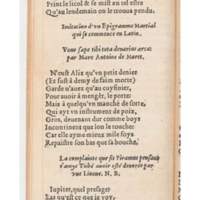 Print le licol & se mist au
Qu'au lendemain on le trouua pendu.
Imitation d'vn Epigramme Martial
qui se commence en Latin.
Vous sape tibi tota
par Marc Antoine de Muret.
N'eust Alix qu'vn petit denier
(Et fust à demy de faim morte)
Garde n'aurez qu'au cousturier,
Pour auoir à menger, le porte:
Mais à quelqu'vn marché de sorte,
Qui ayt vn instrument de poix,
Gros, deuenant dur comme bois
Incontinent que lon le touche:
Car elle ayme mieux mille fois
Repaistre son bas que sa bouche.
La complainte que
d'amye Tubé auoir esté deuorée par
vne Lionne. N. B.
Iupiter, quel presage!
Las qu'est ce que ie voy,